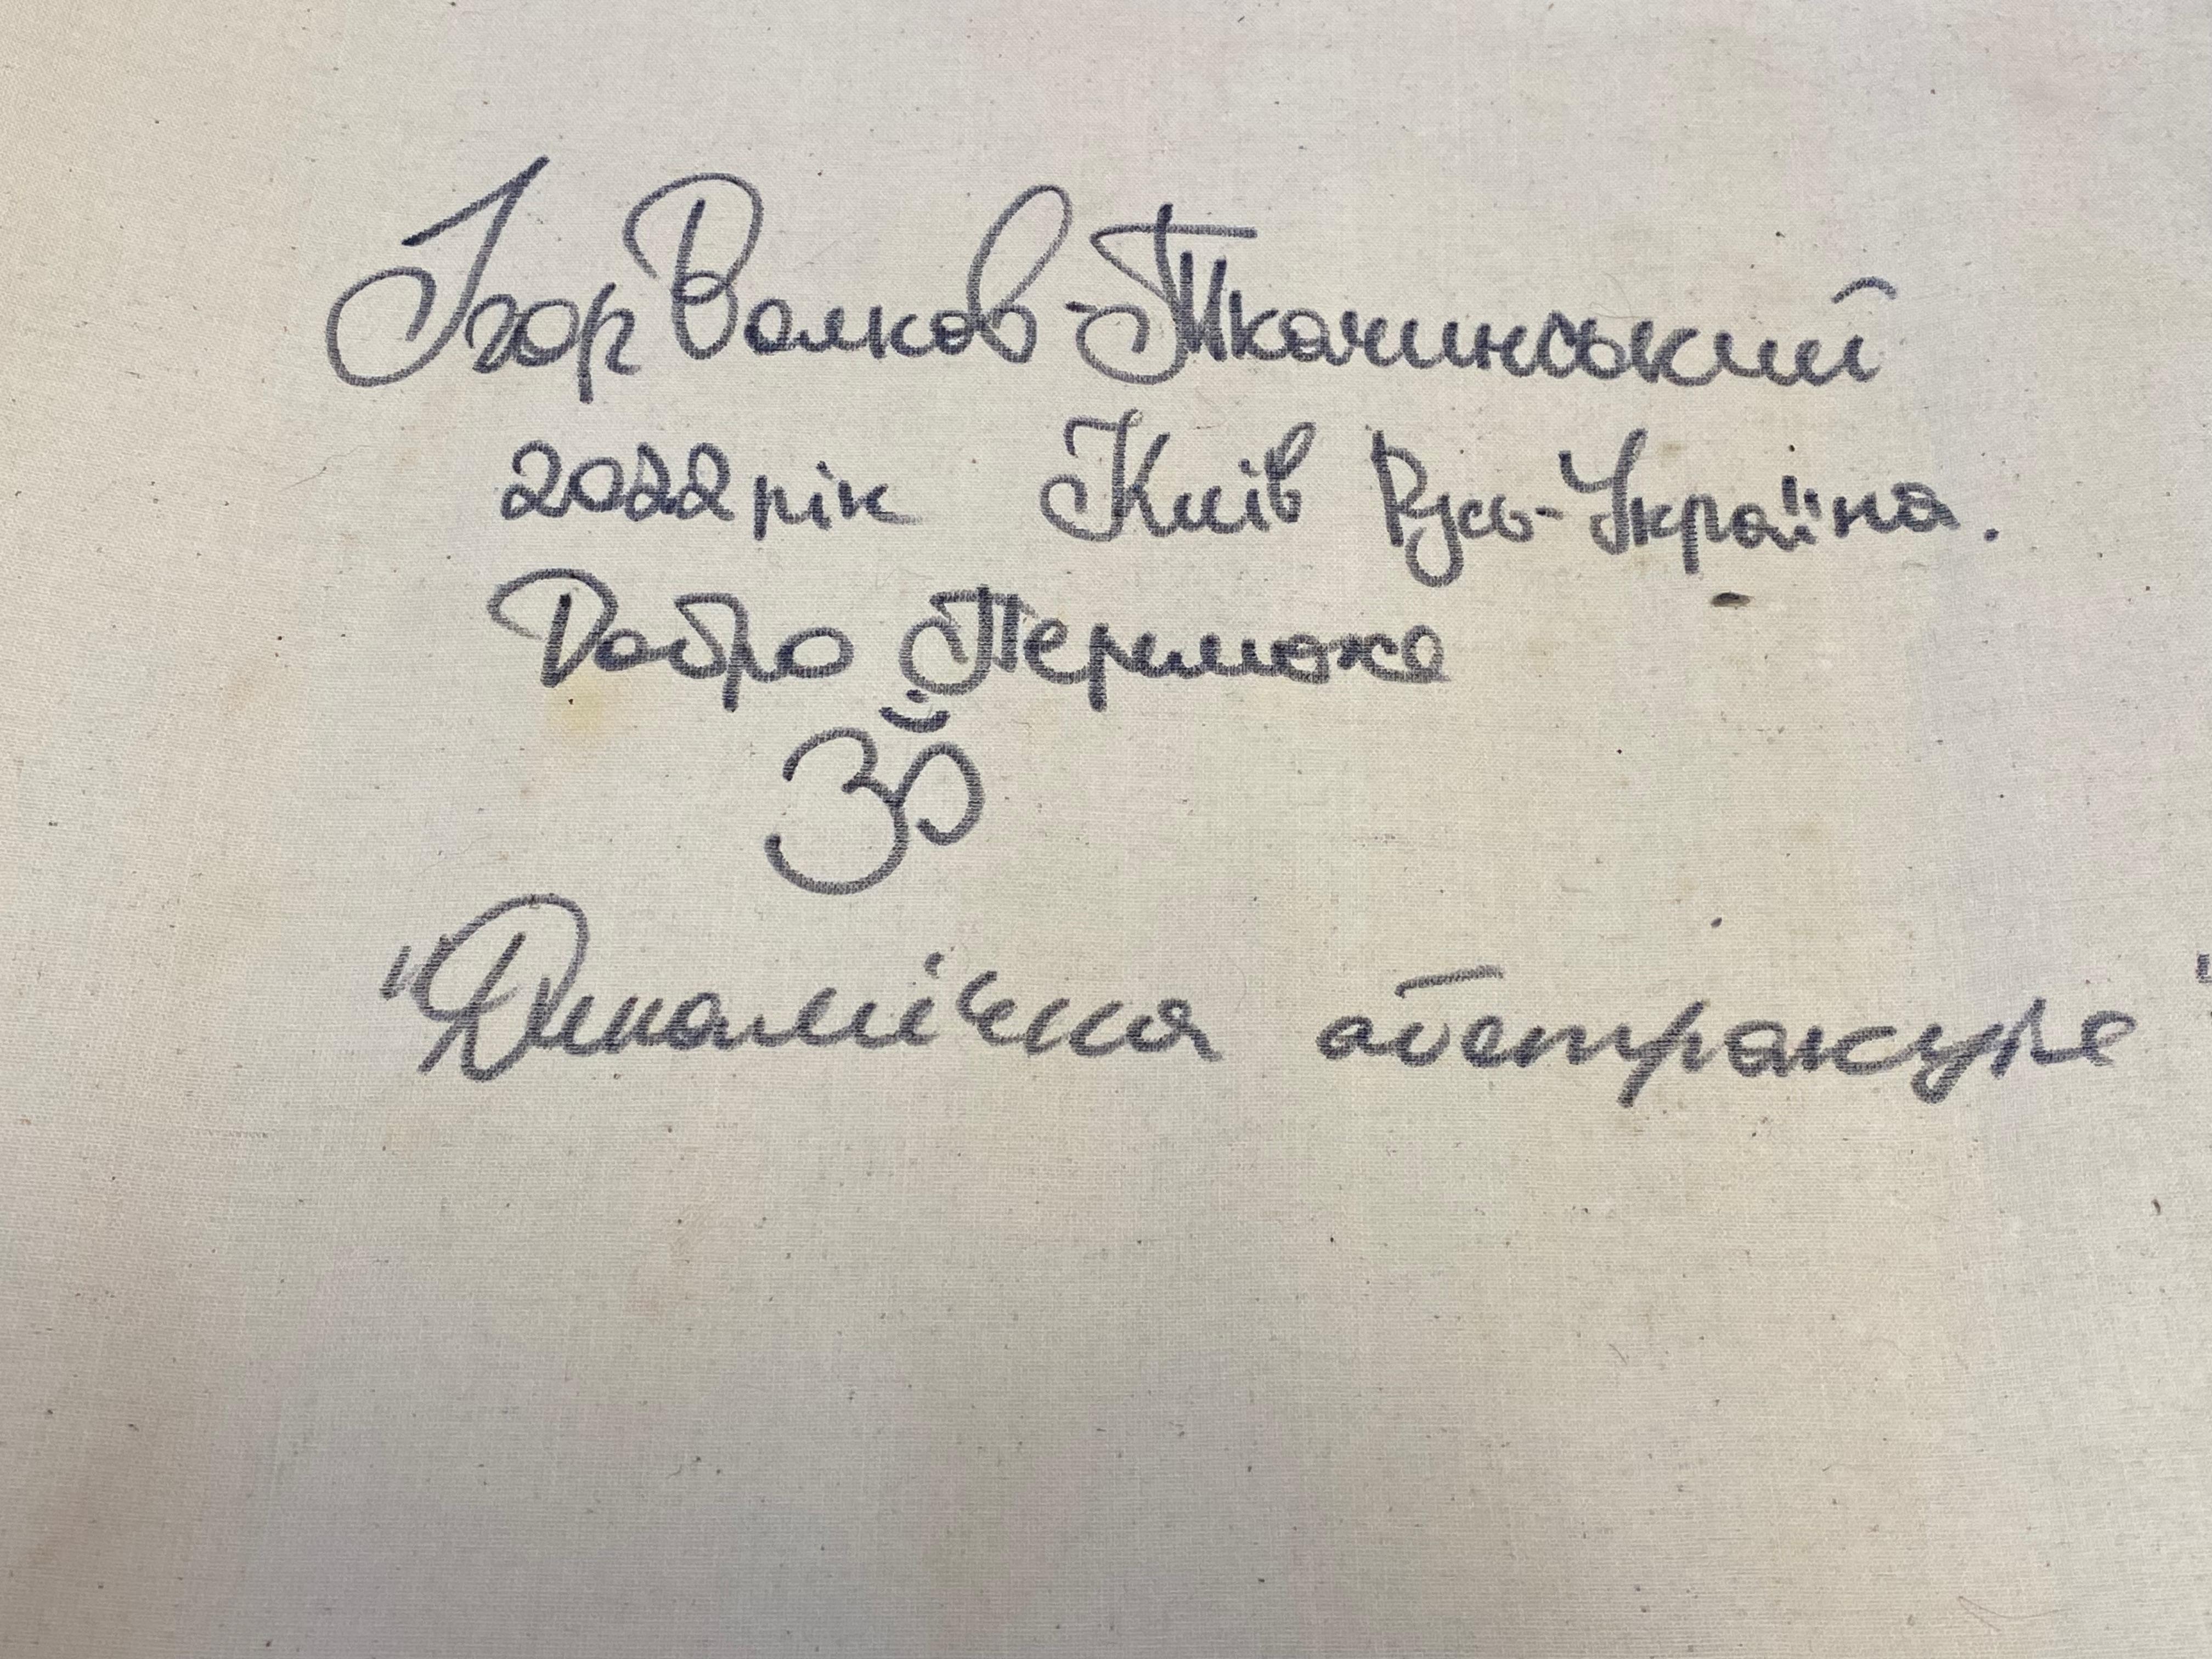 Ігор Волков-Ткачинський
2022 рік Київ Русь-Україна.
Добро Переможе
ॐ
"Динамічна абстракція"